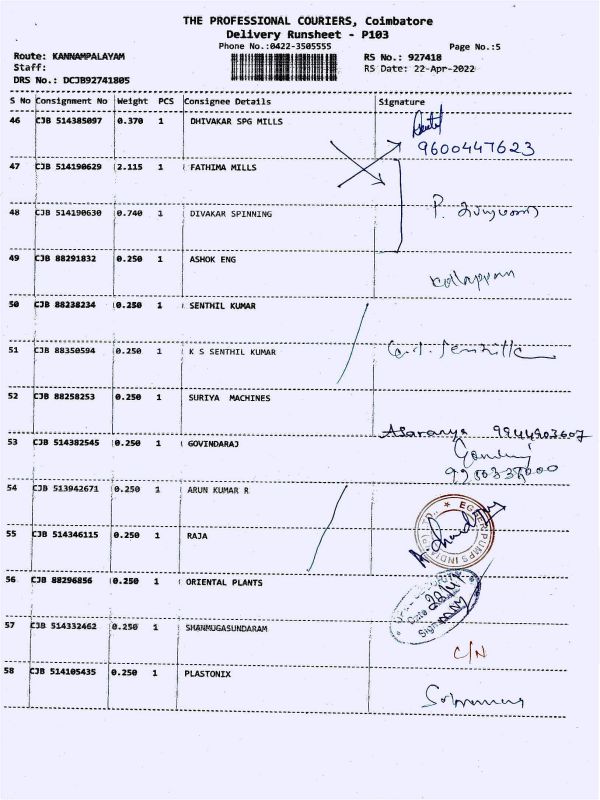 THE PROFESSIONAL COURIERS, Coimbatore
Delivery Runsheet - P103
Phone No.:0422-3505555
Page No.:5
Route: KANNAMPALAYAM
RS No.: 927418
Staff:
RS Date: 22-Apr-2022
DRS No.: DCJB92741805
S No Consignment No Weight PCS Consignee Details Signature
46 CJB 514385097 0.370 1 DHIVAKAR SPG MILLS
9600447623
47 CJB 514190629 2.115 1 FATHIMA MILLS
48 CJB 514190630 0.740 1 DIVAKAR SPINNING
P.
49 CJB 88291832 0.250 1 ASHOK ENG
50 CJB 88238234 0.250 1 SENTHIL KUMAR
51 CJB 88350594 0.250 1 K S SENTHIL KUMAR
52 CJB 88258253 0.250 1 SURIYA MACHINES
Asaranya 9944903607
53 CJB 514382545 0.250 1 GOVINDARAJ
54 CJB 513942671 0.250 1 ARUN KUMAR R
55 CJB 514346115 0.250 1 RAJA
PUMPS INDIA
56 CJB 88296856 0.250 1 ORIENTAL PLANTS
Date
Sign
57 CJB 514332462 0.250 1 SHANMUGASUNDARAM
C/N
58 CJB 514105435 0.250 1 PLASTONIX